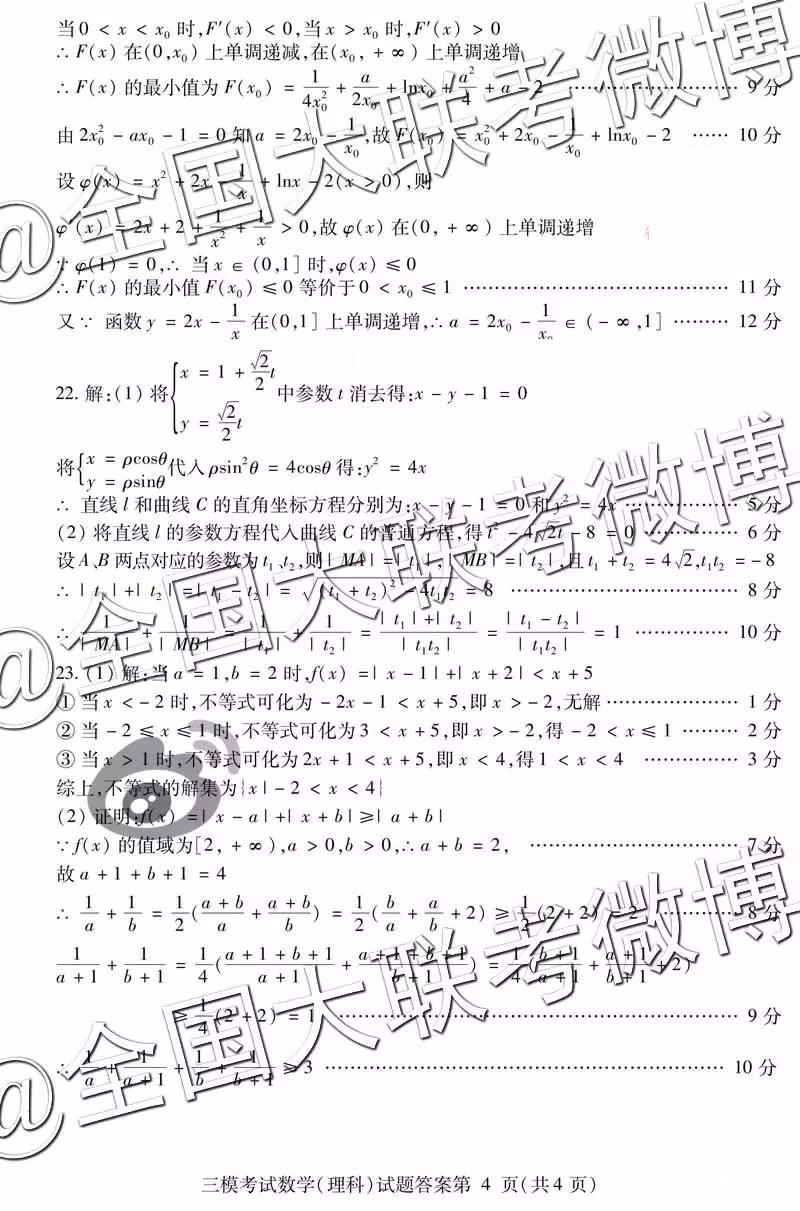 当0 < x < x₀ 时,F′(x) < 0,当 x > x₀ 时,F′(x) > 0
∴ F(x) 在(0,x₀) 上单调递减,在(x₀, + ∞) 上单调递增
∴ F(x) 的最小值为 F(x₀) = 1/(4x₀²) + a/(2x₀) + lnx₀ + a²/4 + a - 2 …………………… 9 分
由 2x₀² - ax₀ - 1 = 0 知 a = 2x₀ - 1/x₀,故 F(x₀) = x₀² + 2x₀ - 1/x₀ + lnx₀ - 2 …… 10 分
设 φ(x) = x² + 2x - 1/x + lnx - 2(x > 0),则
φ′(x) = 2x + 2 + 1/x² + 1/x > 0,故 φ(x) 在(0, + ∞) 上单调递增
∵ φ(1) = 0,∴ 当 x ∈ (0,1] 时,φ(x) ≤ 0
∴ F(x) 的最小值 F(x₀) ≤ 0 等价于 0 < x₀ ≤ 1 …………………………………… 11 分
又∵ 函数 y = 2x - 1/x 在(0,1] 上单调递增,∴ a = 2x₀ - 1/x₀ ∈ (- ∞,1] ……… 12 分
22. 解:(1) 将{x = 1 + (√2/2)t, y = (√2/2)t 中参数 t 消去得:x - y - 1 = 0
将{x = ρcosθ, y = ρsinθ 代入 ρsin²θ = 4cosθ 得:y² = 4x
∴ 直线 l 和曲线 C 的直角坐标方程分别为:x - y - 1 = 0 和 y² = 4x ……………… 5 分
(2) 将直线 l 的参数方程代入曲线 C 的普通方程,得 t² - 4√2t - 8 = 0 …………… 6 分
设 A、B 两点对应的参数为 t₁、t₂,则 | MA| =| t₁|,| MB| =| t₂|,且 t₁ + t₂ = 4√2,t₁t₂ = - 8
∴ | t₁| +| t₂| =| t₁ - t₂| = √((t₁ + t₂)² - 4t₁t₂) = 8 ……………………………… 8 分
∴ 1/| MA| + 1/| MB| = 1/| t₁| + 1/| t₂| = (| t₁| +| t₂|)/| t₁t₂| = | t₁ - t₂|/| t₁t₂| = 1 …………… 10 分
23. (1) 解:当 a = 1,b = 2 时,f(x) =| x - 1| +| x + 2| < x + 5
① 当 x < - 2 时,不等式可化为 - 2x - 1 < x + 5,即 x > - 2,无解 ………………… 1 分
② 当 - 2 ≤ x ≤ 1 时,不等式可化为 3 < x + 5,即 x > - 2,得 - 2 < x ≤ 1 ……… 2 分
③ 当 x > 1 时,不等式可化为 2x + 1 < x + 5,即 x < 4,得 1 < x < 4 …………… 3 分
综上,不等式的解集为{x| - 2 < x < 4}
(2) 证明:f(x) =| x - a| +| x + b| ≥| a + b|
∵ f(x) 的值域为[2, + ∞),a > 0,b > 0,∴ a + b = 2, …………………………… 7 分
故 a + 1 + b + 1 = 4
∴ 1/a + 1/b = 1/2((a + b)/a + (a + b)/b) = 1/2(b/a + a/b + 2) ≥ 1/2(2 + 2) = 2 …………… 8 分
1/(a + 1) + 1/(b + 1) = 1/4((a + 1 + b + 1)/(a + 1) + (a + 1 + b + 1)/(b + 1)) = 1/4((b + 1)/(a + 1) + (a + 1)/(b + 1) + 2)
≥ 1/4(2 + 2) = 1 ……………………………………………………… 9 分
∴ 1/a + 1/(a + 1) + 1/b + 1/(b + 1) ≥ 3 ……………………………………………………… 10 分
三模考试数学(理科)试题答案第 4 页(共4 页)
@全国大联考微博
@全国大联考微博
@全国大联考微博